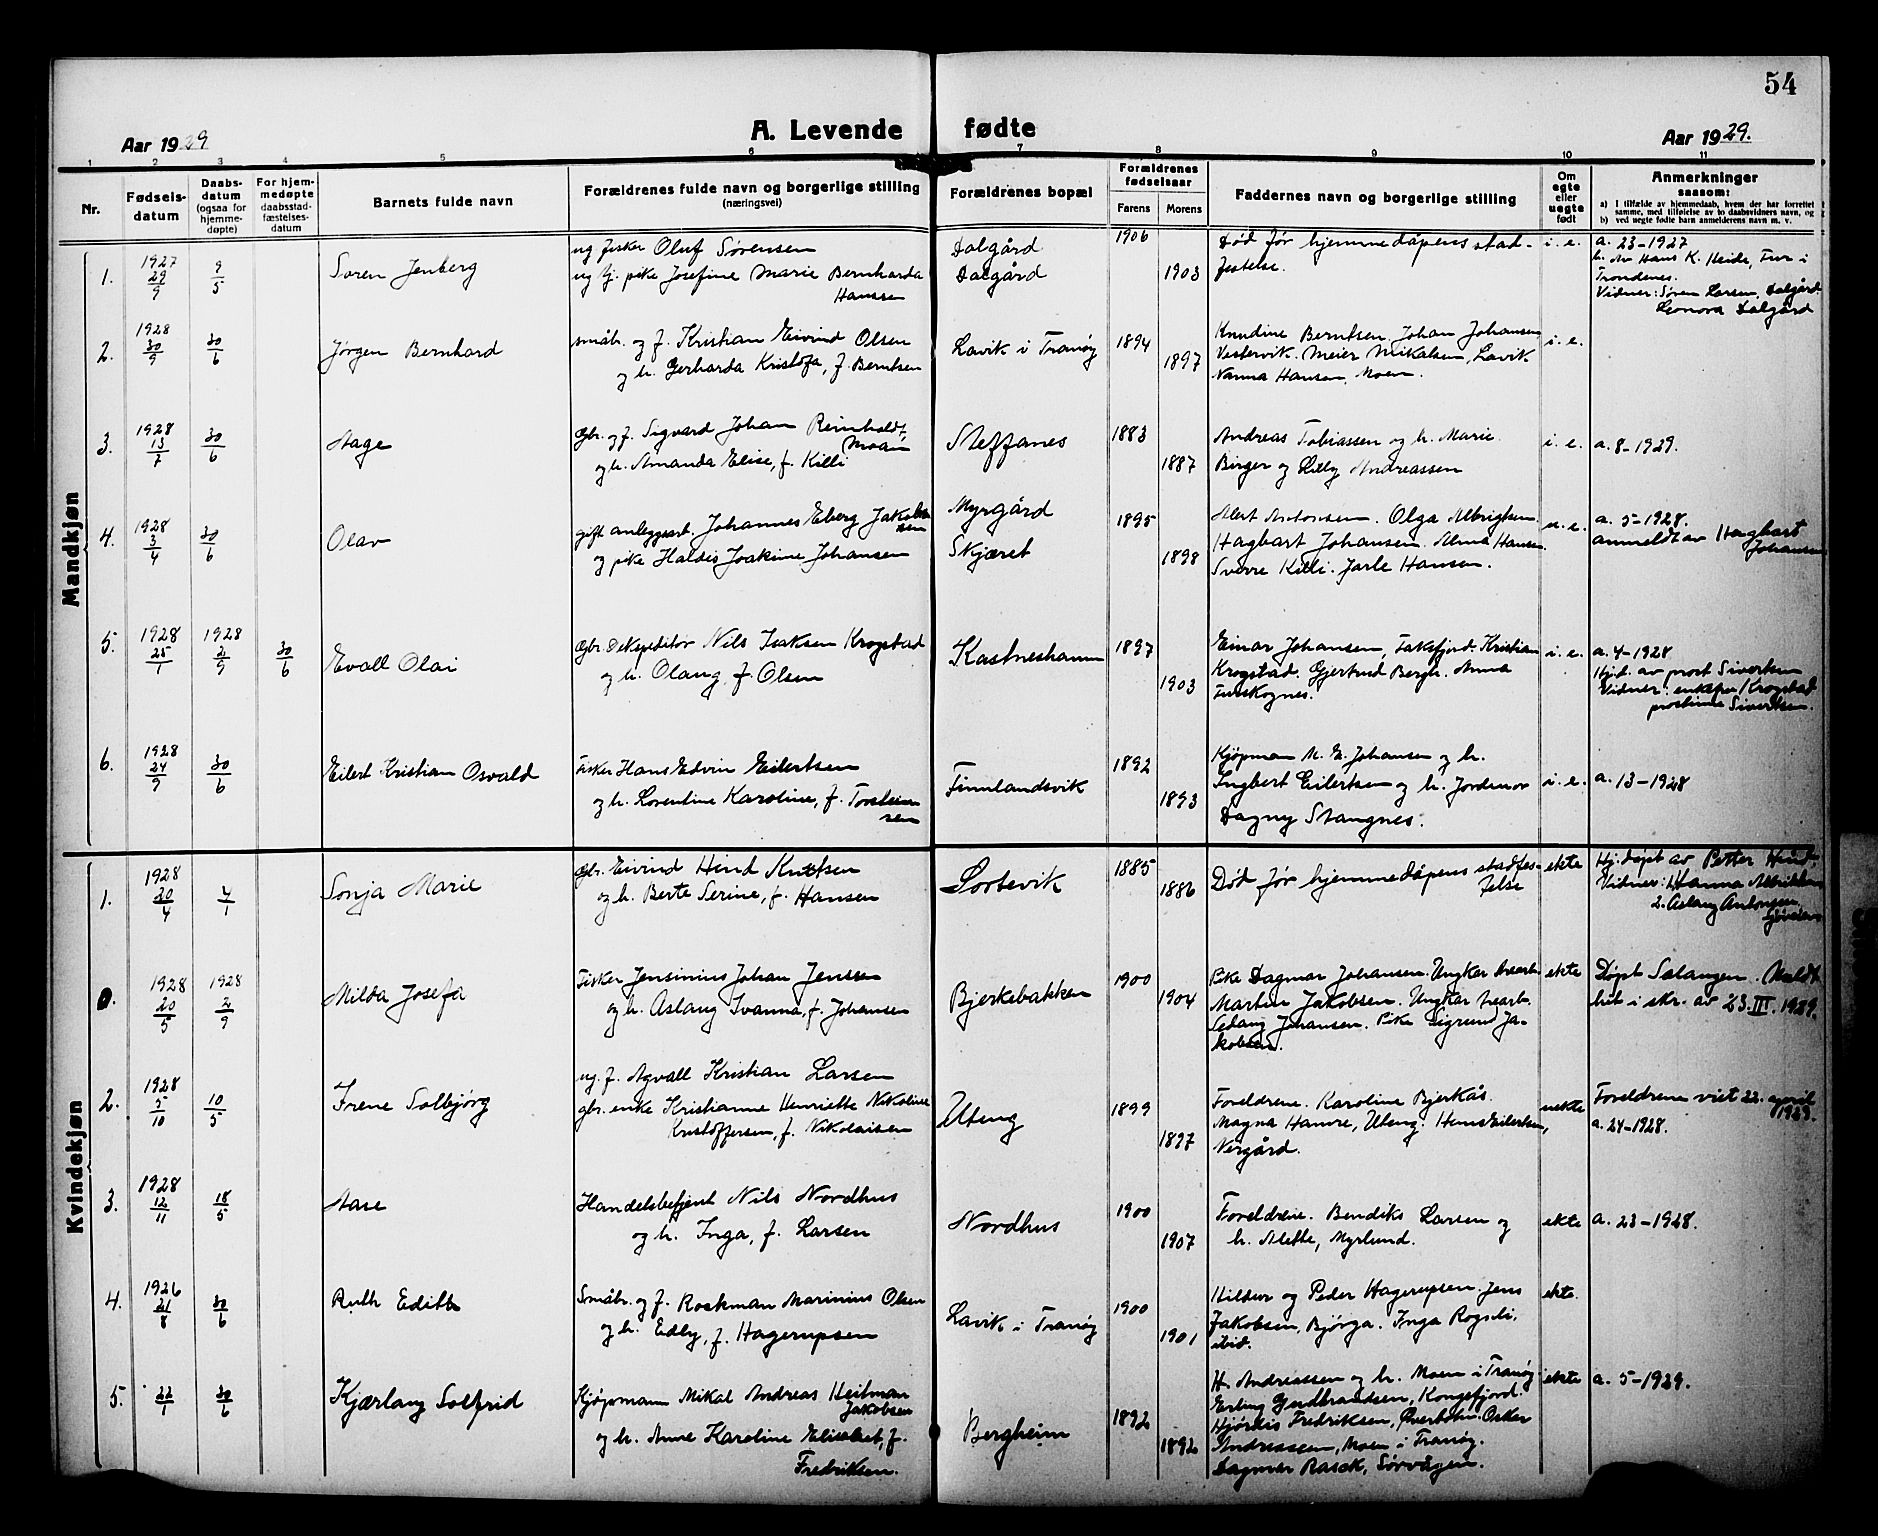 54
A. Levende fødte
Aar 1929
Aar 1929.
1 2 3 4 5 6 7 8 9 10 11
Nr.
Fødsels-
datum
Daabs-
datum
(ogsaa for
hjemme-
døpte)
For hjem-
medøpte
daabsstad-
fæstelses-
datum
Barnets fulde navn
Forældrenes fulde navn og borgerlige stilling
(næringsvei)
Forældrenes bopæl
Forældrenes
fødselsaar
Farens
Morens
Faddernes navn og borgerlige stilling
Om
egte
eller
uegte
født
Anmerkninger
saasom:
a) I tilfælde av hjemmedaab, hvem der har forrettet
samme, med tilføielse av to daabsvidners navn, og
b) ved uegte fødte barn anmelderens navn m. v.
Mandkjøn
1.
1927
29/9
9/5
Søren Jenberg
ug fisker Oluf Sørensen
ug tj. pike Josefine Marie Bernharda
Hanssen
Dalgård
Dalgård
1906
1903
Død før hjemmedåpens stad-
festelse.
i. e.
a. 23-1927
h. av Hans K. Heide, Fur i
Trondenes.
Vidner: Søren Larsen, Dalgård
Leonora Dalgård
2.
1928
30/9
30/6
Jørgen Bernhard
småbr. og f. Kristian Eivind Olsen
og h. Gerharda Kristofa, f. Berntsen
Lavik i Tranøy
1894
1897
Knudine Berntsen, Johan Johansen
Vestervik. Meier Mikalsen, Lavik
Nanna Hansen, Moen.
i. e.
3.
1928
13/7
30/6
Aage
Gbr. og f. Sigvard Johan Reinholdt
Moan
og h. Amanda Elise, f. Killi
Steffanes
1883
1887
Andreas Tobiassen og h. Marie.
Birger og Lilly Andreassen
i. e.
a. 8-1929.
4.
1928
3/4
30/6
Olav
gift anleggsarb. Johannes Eberg Jakob
sen
og pike Haldis Joakime Johansen
Myrgård
Skjæret
1895
1898
Alert Antonsen. Olga Albrigtsen.
Hagbart Johansen. Alma Hansen.
Sverre Killi. Jarle Hansen.
u. e.
a. 5-1928.
anmeldt av Hagbart
Johansen
5.
1928
25/1
1928
2/9
30/6
Evall Olai
Gbr. Dekspeditør Nils Isaksen Krogstad
og h. Olaug, f. Olsen
Kastneshamn
1897
1903
Einar Johansen, Faksfjord. Kristian
Krogstad. Gjertrud Bergh. Anna
Fuskognes.
i. e.
a. 4-1928
Hj.d. av prost Sivertsen
Vidner: Krogstad
prostinne Sivertsen.
6.
1928
24/9
30/6
Eilert Kristian Osvald
Fisker Hans Edvin Eilertsen
og h. Lorentine Karoline, f. Torstein
sen
Finnlandsvik
1892
1893
Kjøpman M. E. Johansen og h.
Ingbert Eilertsen og h. Jordmor
Dagny Stangnes.
i. e.
a. 13-1928
Kvindekjøn
1.
1928
20/4
4/1
Sonja Marie
Gbr. Eivind Hind Knutsen
og h. Berte Serine, f. Hansen
Sortevik
1885
1886
Død før hjemmedåpens stadfes-
telse
ekte
Hj.døpt av Petter Hind
Vidner: 1. Hanna Albriktsen
2. Aslaug Antonsen
0.
1928
20/5
1928
2/9
Milda Josefa
Fisker Jensinius Johan Jenssen
og h. Aslaug Ivanna, f. Johansen
Bjerkebakken
1900
1904
Pike Dagmar Johansen. Ungkar
Martin Jakobsen. Ungkar
Johansen. Pike Sigrund Ja-
kobsen.
ekte
Døpt Salangen. Meldt
hit i skr. av 23.III.1929.
2.
1928
5/10
10/5
Irene Solbjørg
ug. f. Agvall Kristian Larsen
gbr. enke Kristianne Henriette Nikoline
Kristoffersen, f. Nikolaisen
Uteng
1899
1897
Foreldrene. Karoline Bjerkås.
Magna Hamre, Uteng. Hans Eilertsen,
Vergård.
uekte
Foreldrene viet 22. april
1929.
a. 24-1928.
3.
1928
12/11
18/5
Aase
Handelsbetjent Nils Nordhus
og h. Inga, f. Larsen
Nordhus
1900
1907
Foreldrene. Bendiks Larsen og
h. Alette, Myrlund.
ekte
a. 23-1928.
4.
1926
21/8
30/6
Ruth Edith
Småbr. og f. Rockman Marinius Olsen
og h. Edly, f. Hagerupsen
Lavik i Tranøy
1900
1901
Hildur og Peder Hagerupsen. Jens
Jakobsen, Bjørga. Inga Rogsli,
ibid.
ekte.
5.
22/1
30/6
Kjærlaug Solfrid
Kjøpmann Mikal Andreas Heitman
Jakobsen
og h. Anne Karoline Elisabet, f.
Fredriksen.
Bergheim
1892
1892
H. Andreassen og h. Moen i Tranøy
Erling Gudbrandsen, Kongsfjord.
Hjørdis Fredriksen, Øverbotn. Oskar
Andreassen, Moen i Tranøy.
Dagmar Rasck, Sørvågen.
ekte
a. 5-1929.